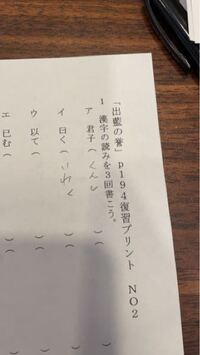 「出藍の誉」p194復習プリント NO2
1 漢字の読みを3回書こう。
ア 君子（くんし
イ 曰く（いわく
ウ 以て（
エ 已む（